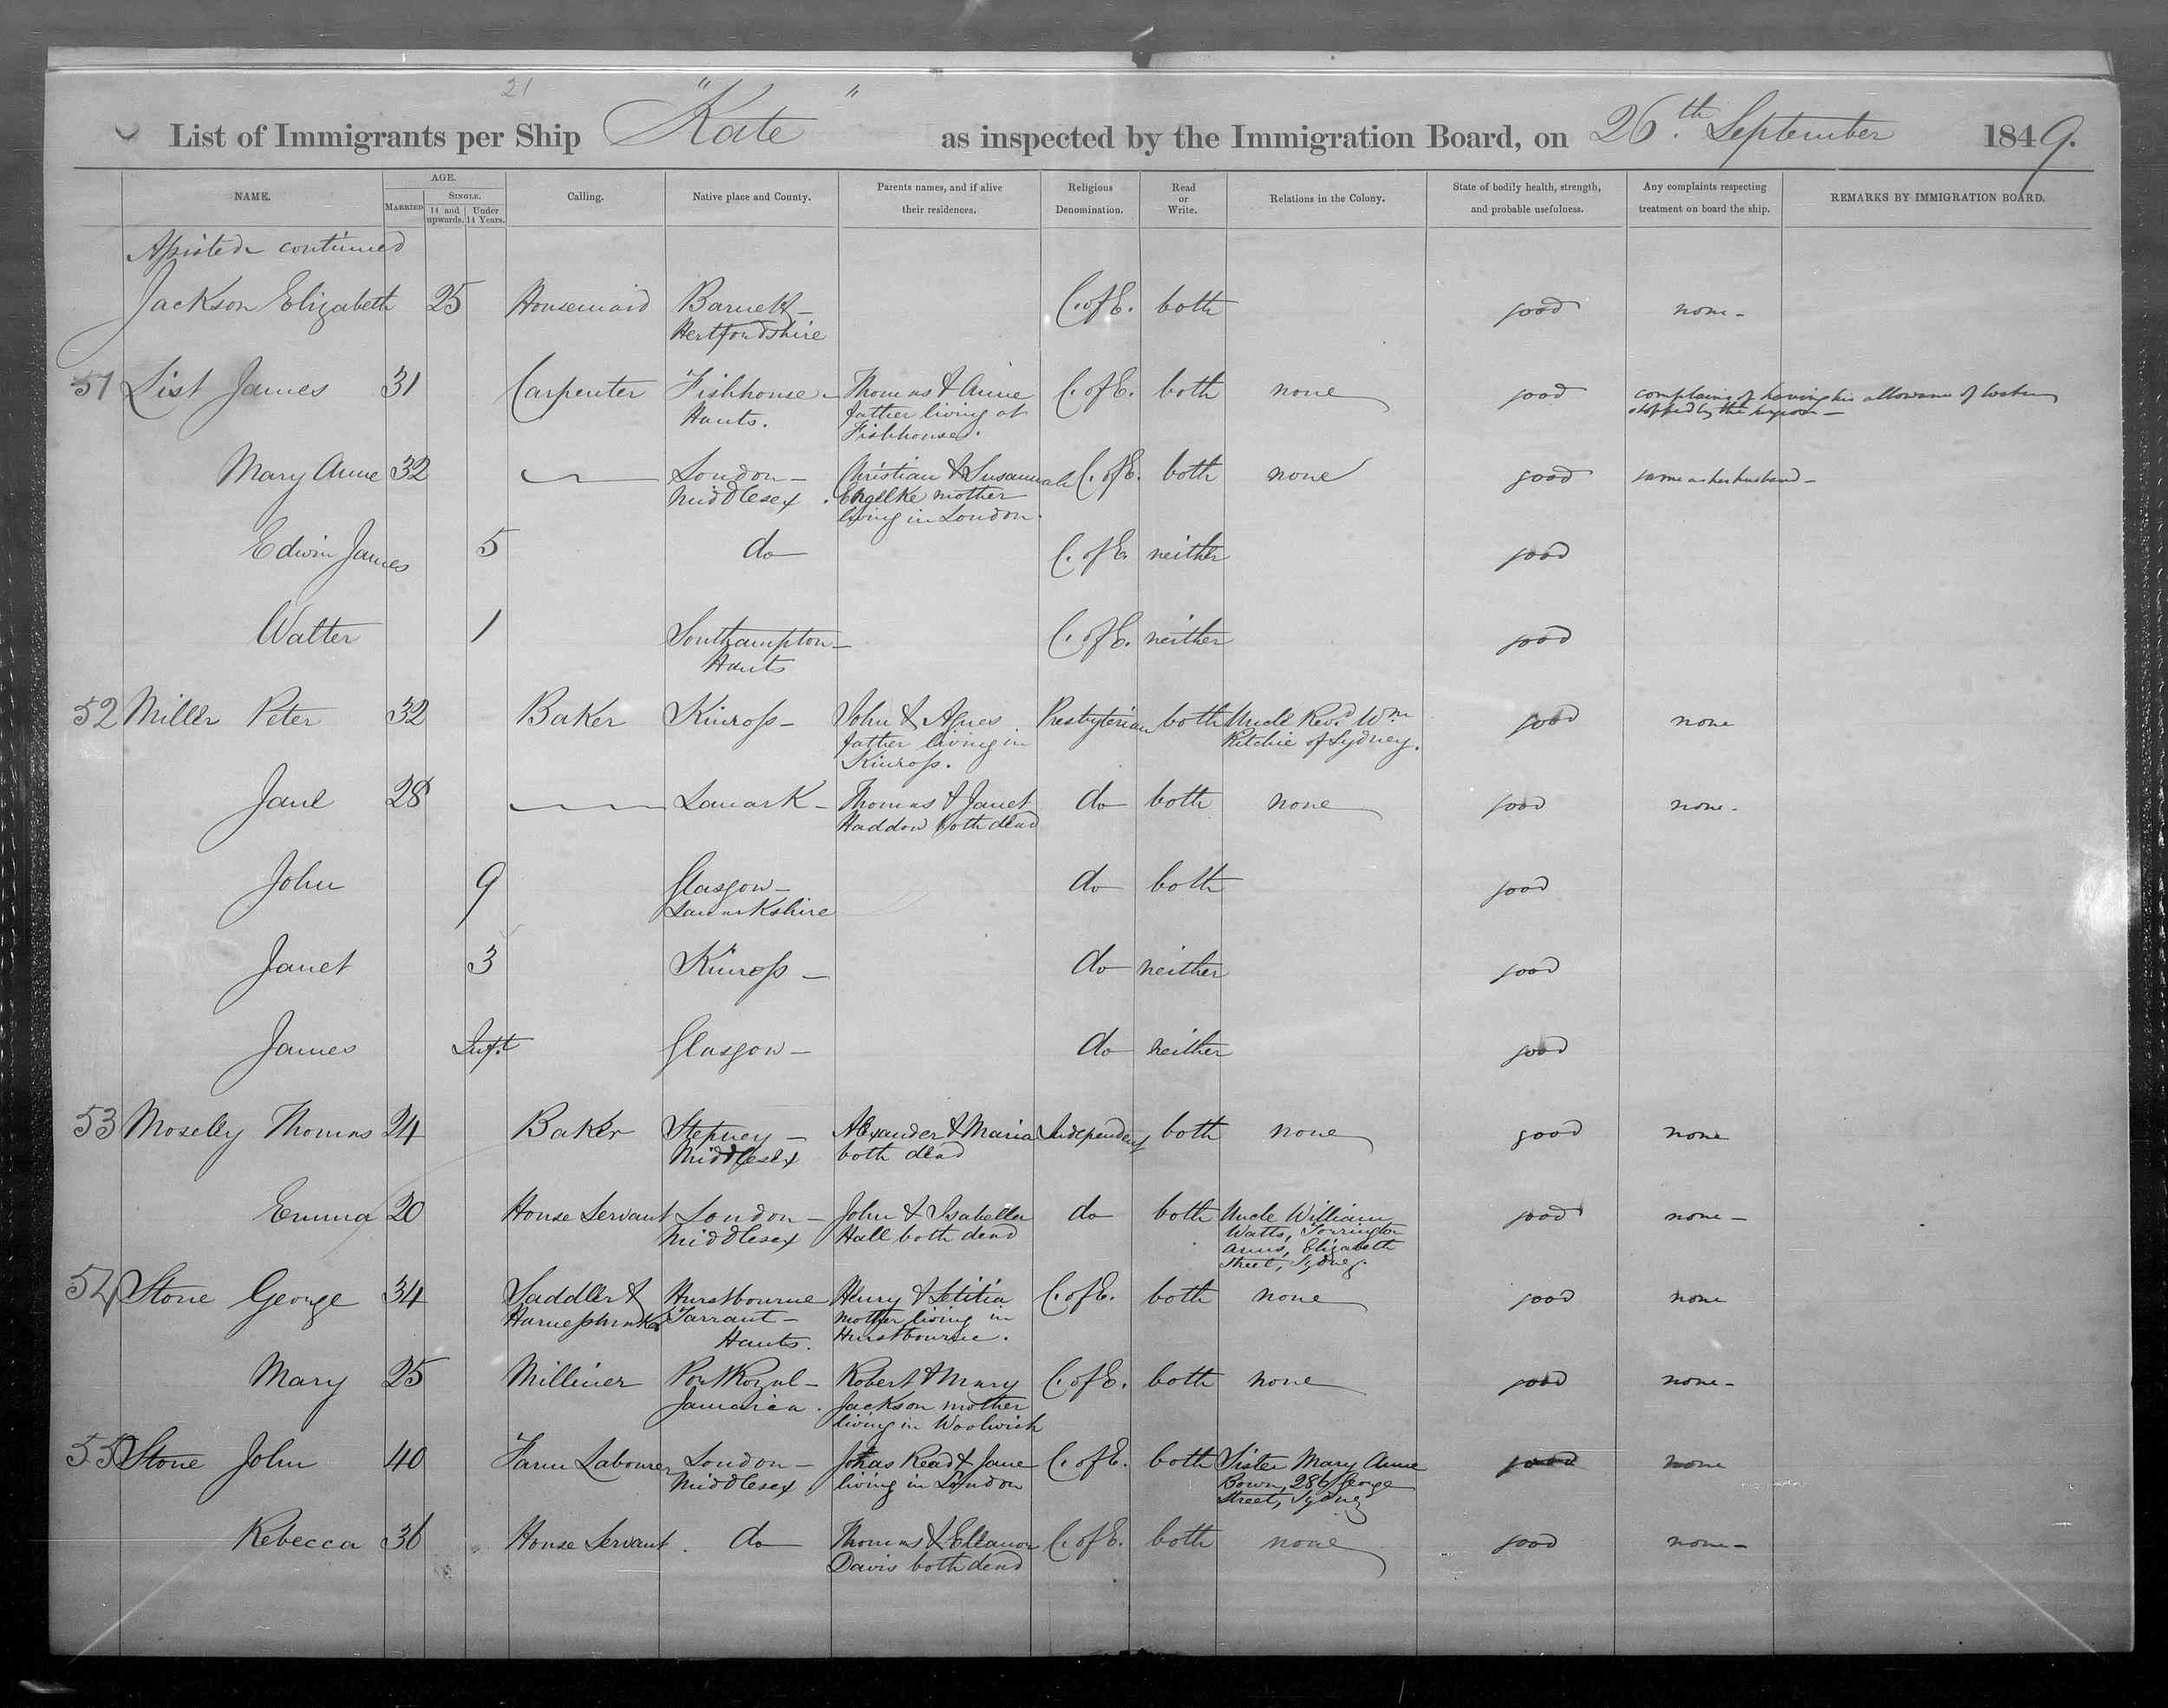 21
List of Immigrants per Ship "Kate" as inspected by the Immigration Board, on 26.th September 1849.
NAME. AGE. Calling. Native place and County. Parents names, and if alive their residences. Religious Denomination. Read or Write. Relations in the Colony. State of bodily health, strength, and probable usefulness. Any complaints respecting treatment on board the ship. REMARKS BY IMMIGRATION BOARD.
MARRIED SINGLE. 14 and upwards. Under 14 Years.
Assisted continued
Jackson Elizabeth 25 Housemaid Barnett - C. of E. both good none -
Hertfordshire
51 List James 31 Carpenter Fishhouse - Thomas & Anne C. of E. both none good complains of having his allowance of
Hants. father living at stopped by the
Fishhouse.
Mary Anne 32 London - Christian & Susannah C. of E. both none good same as her husband -
Middlesex . Engelke mother
living in London.
Edwin James 5 do C. of E. neither good
Walter 1 Southampton - C. of E. neither good
Hants
52 Miller Peter 32 Baker Kinross - John & Agnes Presbyterian both Uncle Rev.d Wm good none
father living in Ritchie of Sydney.
Kinross.
Jane 28 Lanark - Thomas & Janet do both none good none -
Haddow both dead
John 9 Glasgow - do both good
Lanarkshire
Janet 3 Kinross - do neither good
James Inft Glasgow - do neither good
53 Moselly Thomas 24 Baker Stepney - Alexander & Maria Independent both none good none
Middlesex both dead
Emma 20 House Servant London - John & Isabella do both Uncle William good none -
Middlesex Hall both dead Watts, Torrington
Arms, Elizabeth
Street, Sydney.
54 Stone George 34 Saddler & Hurstbourne Henry & Letitia C. of E. both none good none
Harnessmaker Tarrant - mother living in
Hants. Hurstbourne.
Mary 25 Milliner Port Royal - Robert & Mary C. of E. both none good none -
Jamaica . Jackson mother
living in Woolwich
55 Stone John 40 Farm Labourer London - Jonas Read & Jane C. of E. both Sister Mary Anne good none
Middlesex living in London Bown, 286 George
Street, Sydney
Rebecca 36 House Servant . do Thomas & Eleanor C. of E. both none good none -
Davis both dead